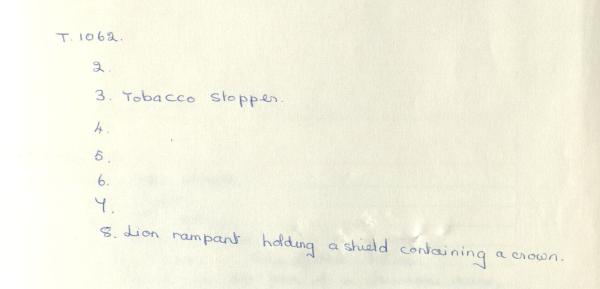 T. 1062.
2.
3. Tobacco stopper.
4.
5.
6.
7.
8. Lion rampant holding a shield containing a crown.